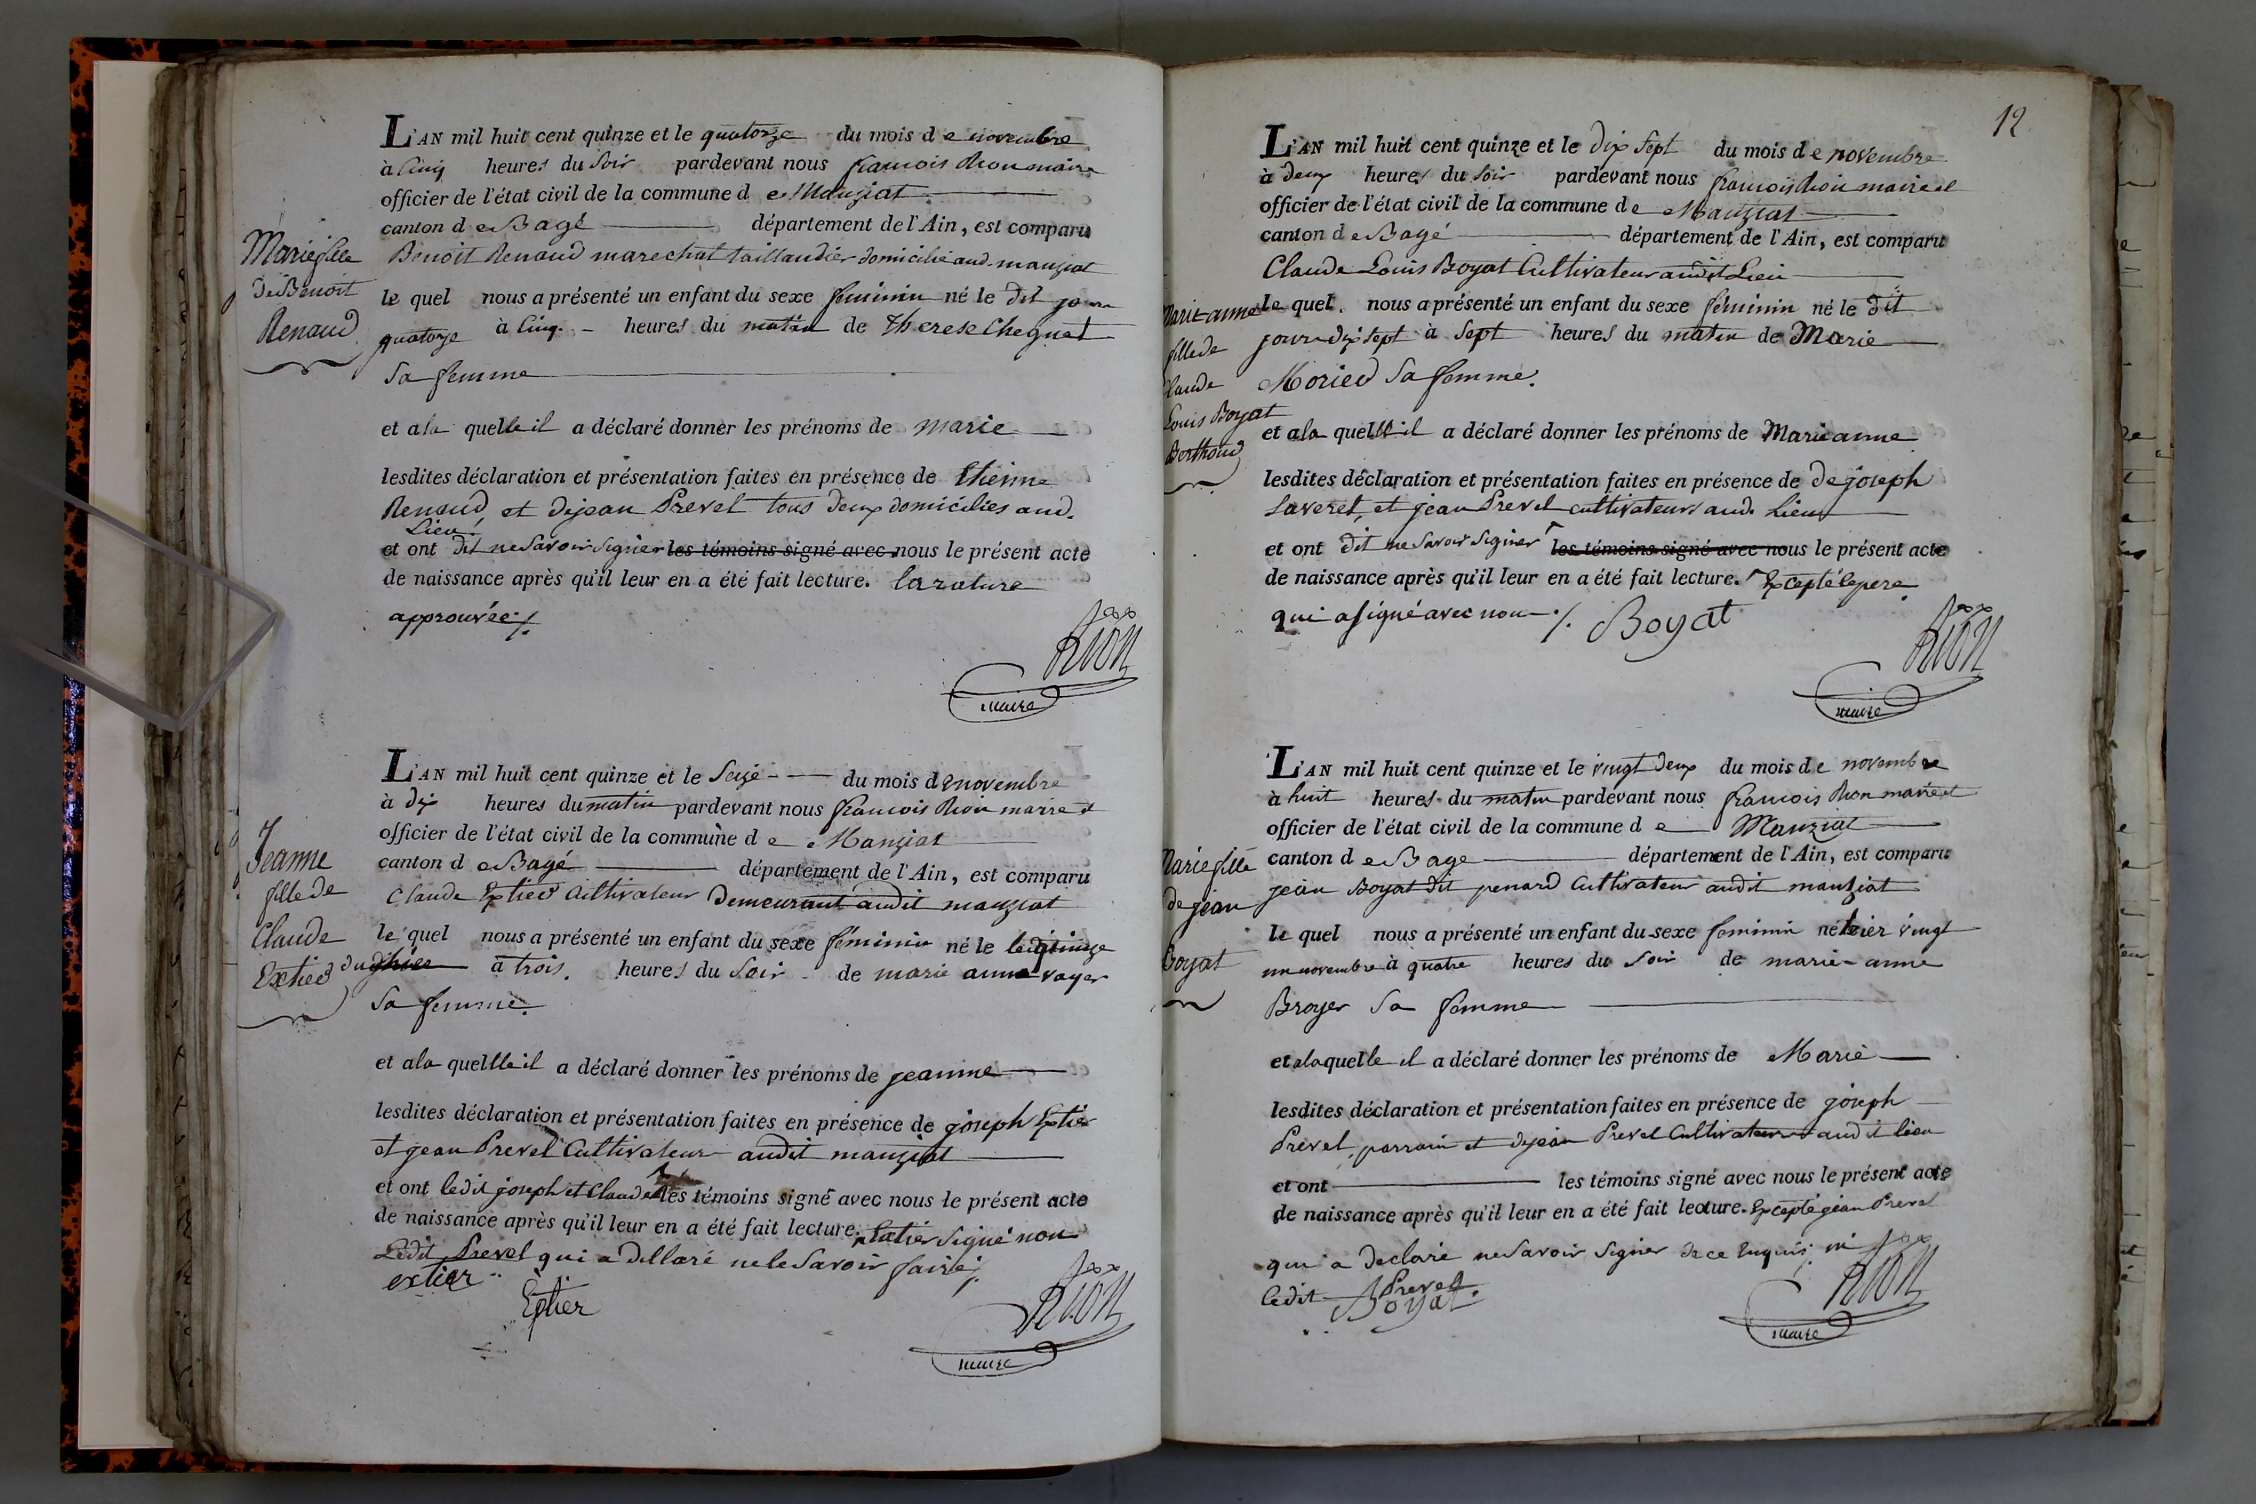 L'AN mil huit cent quinze et le quatorze du mois de novembre
à Cinq heures du Soir pardevant nous françois Rion maire
officier de l'état civil de la commune de Manziat
canton de Bagé département de l'Ain, est comparu
Benoit Renaud marechal taillandier domicilié aud. manziat
le quel nous a présenté un enfant du sexe feminin né le dit jour
quatorze à Cinq heures du matin de therese Chequet
Sa femme
et a la quelle il a déclaré donner les prénoms de marie
lesdites déclaration et présentation faites en présence de Etienne
Renaud et de jean Prevel tous deux domiciliés aud.
Lieu
et ont dit ne Savoir Signer les témoins signé avec nous le présent acte
de naissance après qu'il leur en a été fait lecture. la rature
approuvée ./.
Rion
maire
Marie fille
de Benoit
Renaud
L'AN mil huit cent quinze et le Seize du mois de novembre
à dix heures du matin pardevant nous françois Rion maire et
officier de l'état civil de la commune de Manziat
canton de Bagé département de l'Ain, est comparu
Claude Extier Cultivateur Demeurant audit manziat
le quel nous a présenté un enfant du sexe féminin né le le quinze
du à trois heures du Soir de marie anne voyer
Sa femme.
et a la quelle il a déclaré donner les prénoms de jeanne
lesdites déclaration et présentation faites en présence de joseph Extier
et jean Prevel Cultivateur audit manziat
et ont ledit joseph et Claude les témoins signé avec nous le présent acte
de naissance après qu'il leur en a été fait lecture. Extier Signé non
Ledit Prevel qui a dellaré ne le Savoir faire ./.
extier
Extier
Rion
maire
Jeanne
fille de
Claude
Extier
12
L'AN mil huit cent quinze et le dix Sept du mois de novembre
à deux heures du Soir pardevant nous françois Rion maire et
officier de l'état civil de la commune de Manziat
canton de Bagé département de l'Ain, est comparu
Claude Louis Boyat Cultivateur audit Lieu
le quel nous a présenté un enfant du sexe féminin né le dit
jour dix sept à Sept heures du matin de Marie
Moried Sa femme.
et a la quelle il a déclaré donner les prénoms de Marie anne
lesdites déclaration et présentation faites en présence de de joseph
Laveret, et jean Prevel cultivateurs aud. Lieu
et ont dit ne Savoir Signer les témoins signé avec nous le présent acte
de naissance après qu'il leur en a été fait lecture. Excepté le pere
qui a signé avec nou ./. Boyat
Rion
maire
Marie anne
fille de
Claude
Louis Boyat
Berthoud
L'AN mil huit cent quinze et le vingt deux du mois de novembre
à huit heures du matin pardevant nous françois Rion maire et
officier de l'état civil de la commune de Manziat
canton de Bage département de l'Ain, est comparu
jean Boyat dit penard Cultivateur audit manziat
le quel nous a présenté un enfant du sexe feminin né hier vingt
un novembre à quatre heures du Soir de marie-anne
Broyer Sa femme
et a la quelle il a déclaré donner les prénoms de Marie
lesdites déclaration et présentation faites en présence de joseph
Prevel, parrain et de jean Prevel Cultivateurs audit lieu
et ont les témoins signé avec nous le présent acte
de naissance après qu'il leur en a été fait lecture. Excepté jean Prevel
qui a declaré ne Savoir Signer de ce Enquis, ni
ledit Prevel.
Boyat
Rion
maire
Marie fille
de jean
Boyat